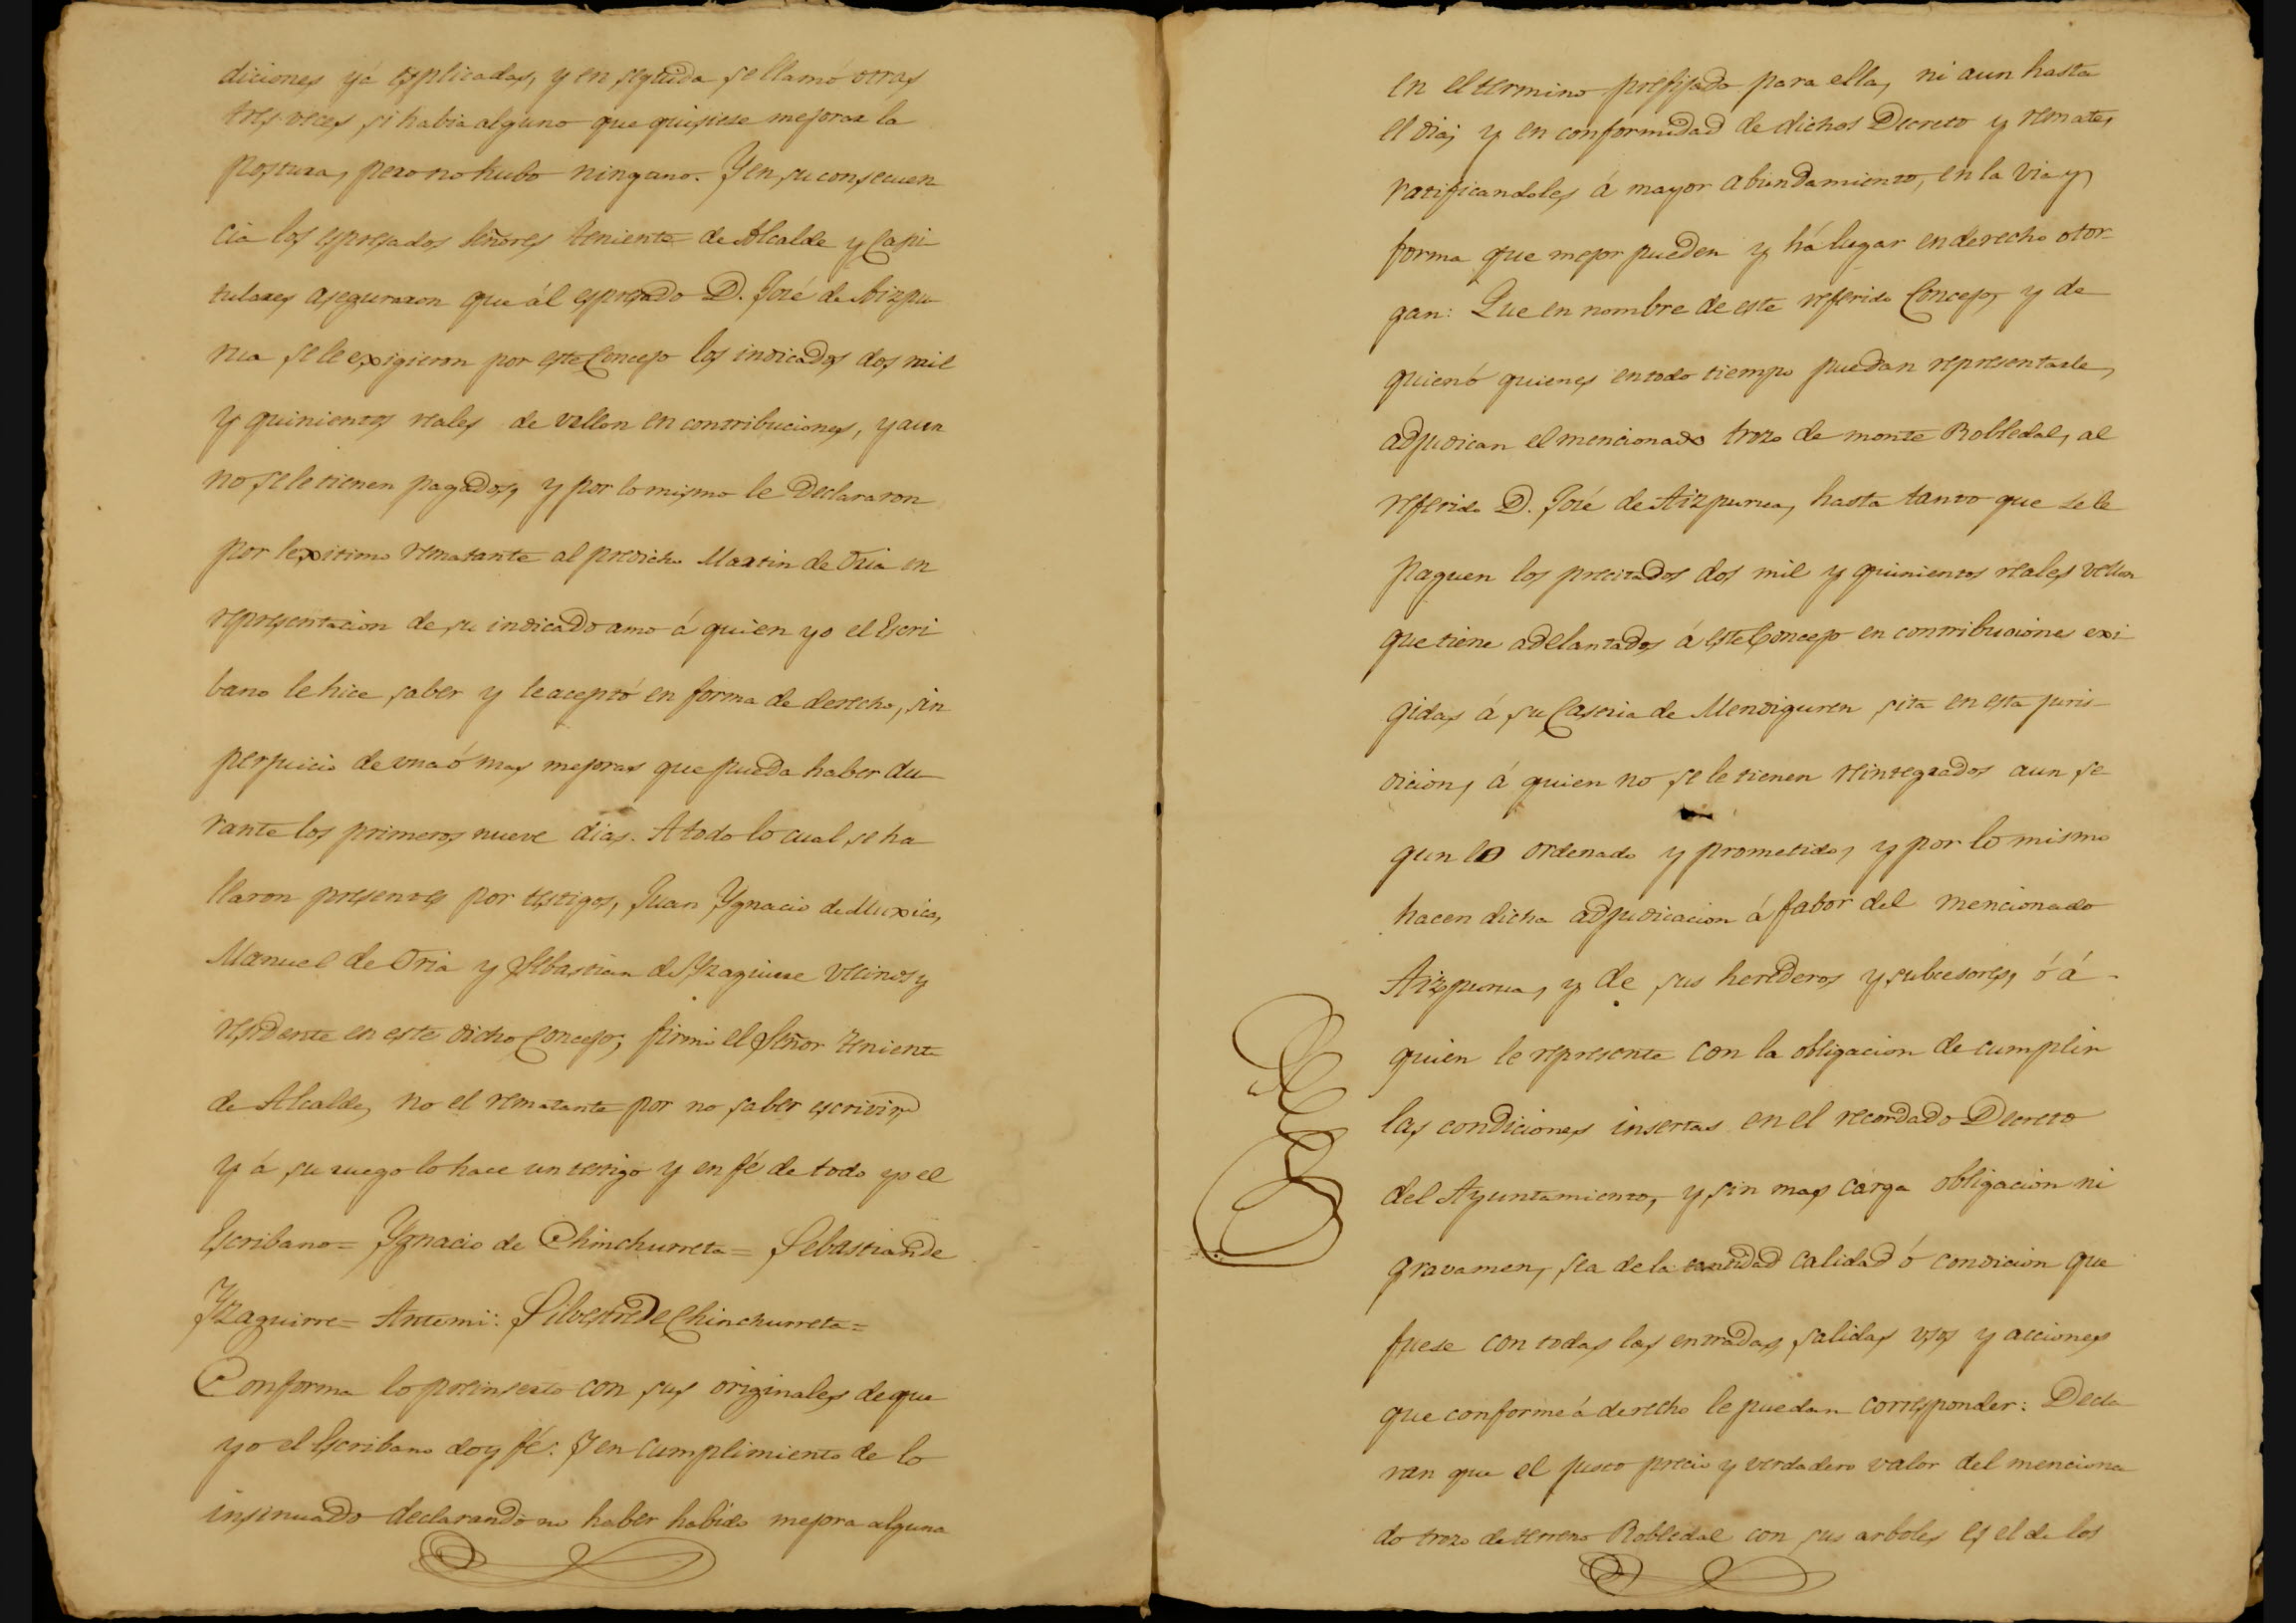 diciones yá explicadas, y en seguida se llamó otras
tres veces si habia alguno que quisiese mejorar la
postura, pero no hubo ninguno. Y en su consecuen
cia los espresados Señores teniente de Alcalde y Capi
tulares aseguraron que ál espresado D. José de Aizpu
rua se le exigieron por este Concejo los indicados dos mil
y quinientos reales de vellon en contribuciones, y aun
no se le tienen pagados, y por lo mismo le Declararon
por lexitimo rematante al predicho Martin de Oria en
representacion de su indicado amo á quien yo el Escri
bano le hice saber y le aceptó en forma de derecho, sin
perjuicio de una ó mas mejoras que pueda haber du
rante los primeros nueve dias. A todo lo cual se ha
llaron presentes por testigos, Juan Ygnacio de Muxica,
Manuel de Oria y Sebastian de Yzaguirre vecinos y
residente en este dicho Concejo; firmó el Señor teniente
de Alcalde, no el rematante por no saber escrivir,
y á su ruego lo hace un testigo y en fé de todo yo el
Escribano= Ygnacio de Chinchurreta= Sebastian de
Yzaguirre= Antemi: Silvestre de Chinchurreta=
Conforma lo preinserto con sus originales de que
yo el Escribano doy fé: Y en cumplimiento de lo
insinuado declarando no haber habido mejora alguna
en el termino prefijado para ella, ni aun hasta
el dia; y en conformidad de dichos Decreto y remate,
ratificandoles á mayor abundamiento, en la via y
forma que mejor pueden y há lugar en derecho otor-
gan: Que en nombre de este referido Concejo, y de
quien ó quienes en todo tiempo puedan representarle,
adjudican el mencionado trozo de monte Robledal, al
referido D. José de Aizpurua, hasta tanto que se le
paguen los precitados dos mil y quinientos reales vellon
que tiene adelantados á este Concejo en contribuciones exi-
gidas á su Caseria de Mendiguren sita en esta juris-
dicion, á quien no se le tienen reintegrados aun se-
gun lo ordenado y prometido, y por lo mismo
hacen dicha adjudicacion á fabor del mencionado
Aizpurua, y de sus herederos y subcesores, ó á
quien le represente con la obligacion de cumplir
las condiciones insertas en el recordado Decreto
del Ayuntamiento, y sin mas carga obligacion ni
gravamen, sea de la calidad ó condicion que
fuese con todas las entradas, salidas usos y acciones
que conforme á derecho le puedan corresponder: Decla
ran que el justo precio y verdadero valor del menciona
do trozo de terreno Robledal con sus arboles es el de los